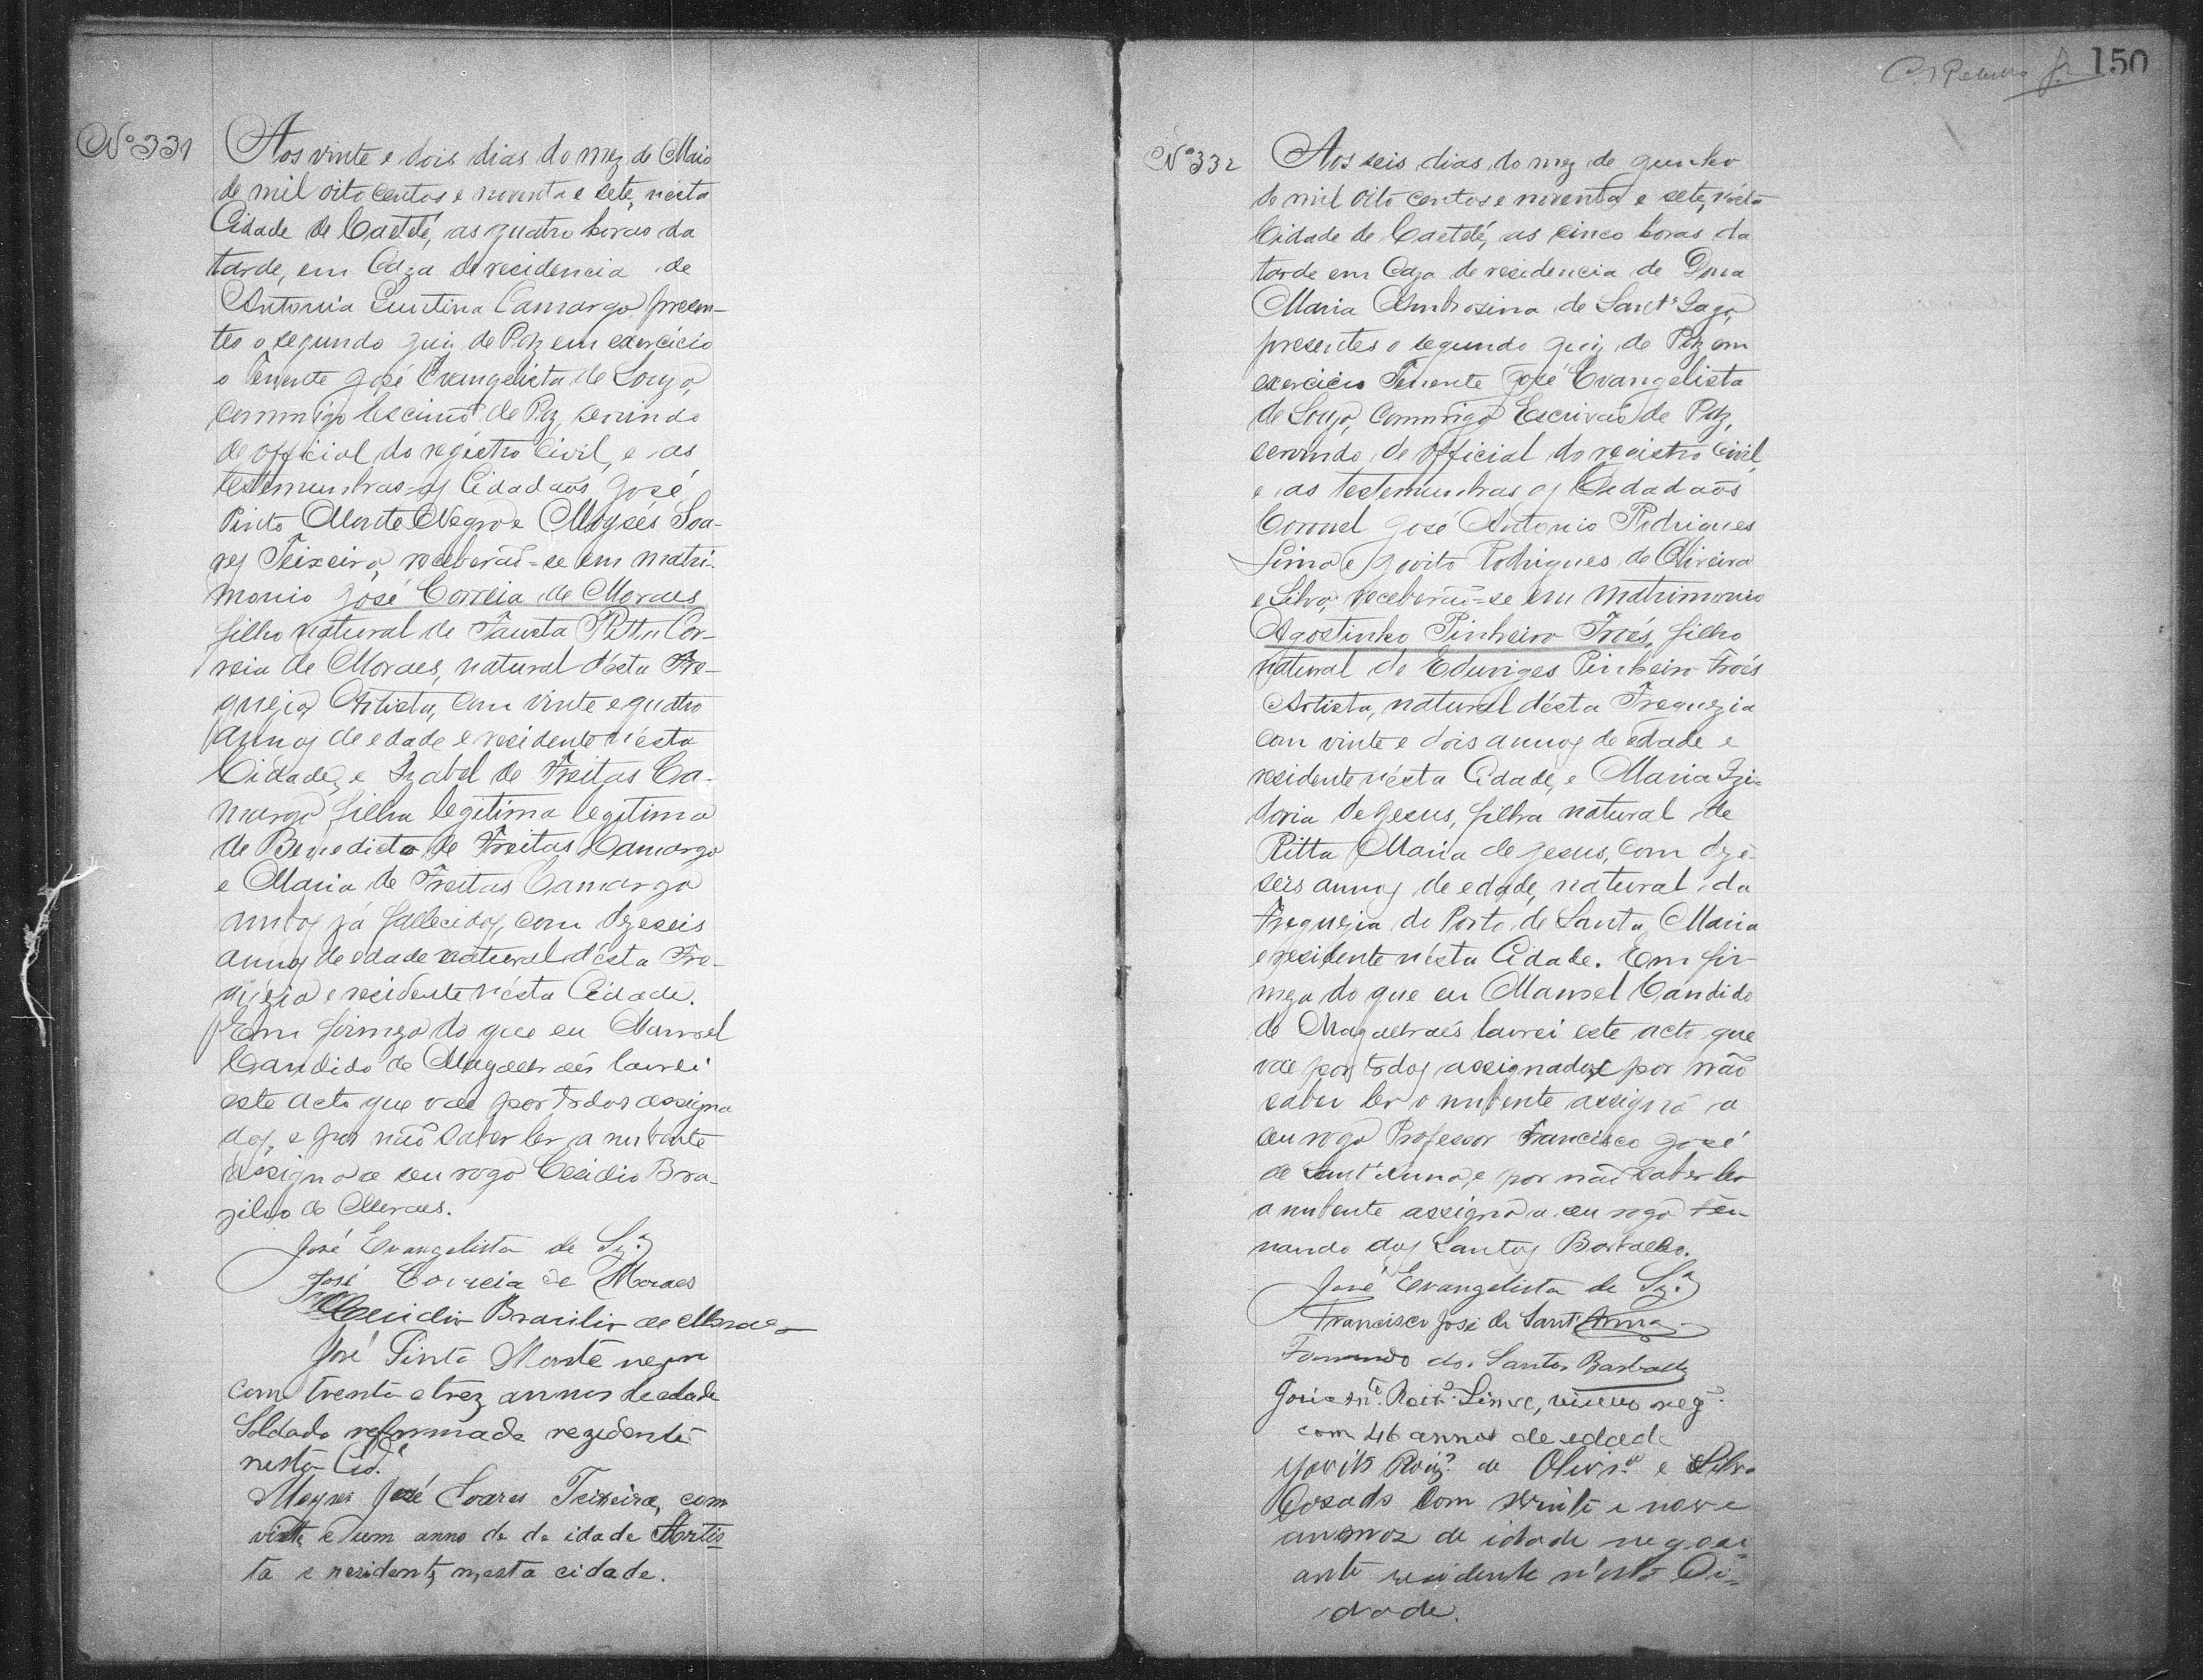 Nº 331
Aos vinte e dois dias do mez de Maio
de mil oito centos e noventa e sete, nésta
Cidade de Caetité, as quatro horas da
tarde, em Caza de residencia de
Antonia Camargo, presen-
tes o segundo Juiz de Paz em exercicio
o Tenente José Evangelista de Souza,
commigo Escrivaõ de Paz, servindo
de official do registro Civil, e as
testemunhas os Cidadaõs José
Pinto Monte Negro e Moysés Soa-
res Teixeira, receberaõ-se em matri-
monio José Correia de Moraes
filho natural de Fausta Ritta Cor-
reia de Moraes, natural désta Fre-
guezia, Artista, com vinte e quatro
annos de edade e residente n'ésta
Cidade, e Izabel de Freitas Ca-
margo filha legitima legitima
de Benedicto de Freitas Camargo
e Maria de Freitas Camargo
ambos já fallecidos, com dezeseis
annos de edade natural désta Fre-
guezia e residente nésta Cidade.
Em firmeza do que eu Manoel
Candido de Magalhaẽs lavrei
este acto que vae por todos assigna
dos, e por naõ saber ler a nubente
assigna a seu rogo Cesidio Bra-
zilio de Moraes.
José Evangelista de Sz.ª
José Correia de Moraes
Cesidio Brasilio de Moraes
José Pinto Monte negro
com trenta e trez annos de edade
Soldado reformado rezidente
nesta Cid.e
Moyses José Soares Teixeira, com
vinte e um anno de de idade Artis-
ta e residente nesta cidade.
150
Nº 332
Aos seis dias do mez de Junho
de mil oito centos e noventa e sete, nésta
Cidade de Caetité, as cinco horas da
tarde em Caza de residencia de Dona
Maria Ambrosina de Sant'Iago,
presentes o segundo Juiz de Paz em
exercicio Tenente José Evangelista
de Souza, commigo Escrivaõ de Paz,
servindo de official do registro Civil,
e as testemunhas os Cidadaõs
Coronel José Antonio Rodrigues
Lima e Jovito Rodrigues de Oliveira
e Silva, receberaõ-se em matrimonio
Agostinho Pinheiro Froés, filho
natural de Eduviges Pinheiro Froés
Artista, natural désta Freguezia
com vinte e dois annos de edade e
residente nésta Cidade, e Maria Izi-
doria de Jesus, filha natural de
Ritta Maria de Jesus, com deze-
seis annos de edade, natural da
Freguezia do Porto de Santa Maria
e residente nésta Cidade. Em fir-
meza do que eu Manoel Candido
de Magalhaẽs lavrei este acto que
vae por todos assignados e por não
saber ler o nubente assigna a
seu rogo Professor Francisco José
de Sant'Anna, e por naõ saber ler
a nubente assigna a seu rogo Fer-
nando dos Santos Barbalho.
José Evangelista de Sz.ª
Francisco José de Sant'Anna
Fernando dos Santos Barbalho
José Ant.º Roiz' Lima, viuvo neg.e
com 46 annos de edade
Jovito Roiz' de Olivr.ª e Silva
Casado Com vinte e nove
annos de idade negoci
ante residente n'esta Ci-
dade.